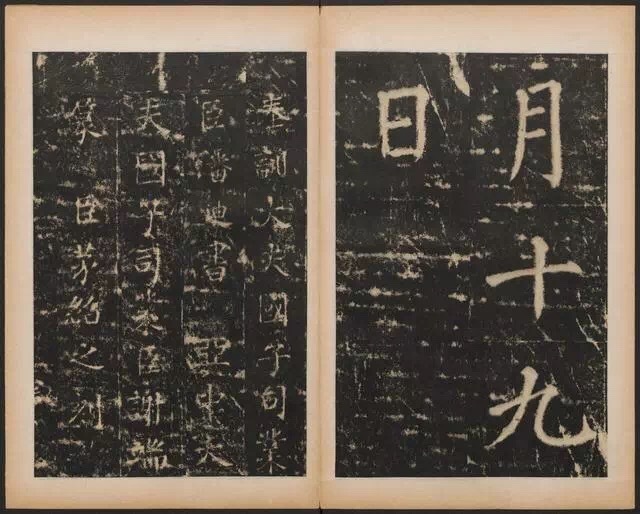 月十九
日
奉訓大夫國子司業
臣潘迪書 亞中大
夫國子司業臣謝端
篆 臣茅紹之刻